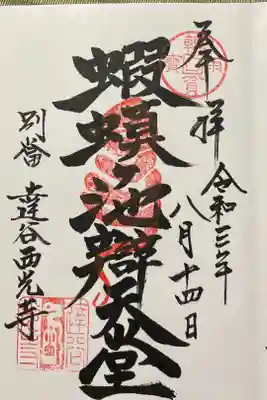 奉拝
令和三年
八月十四日
蝦蟆池辯天堂
別當
達谷西光寺